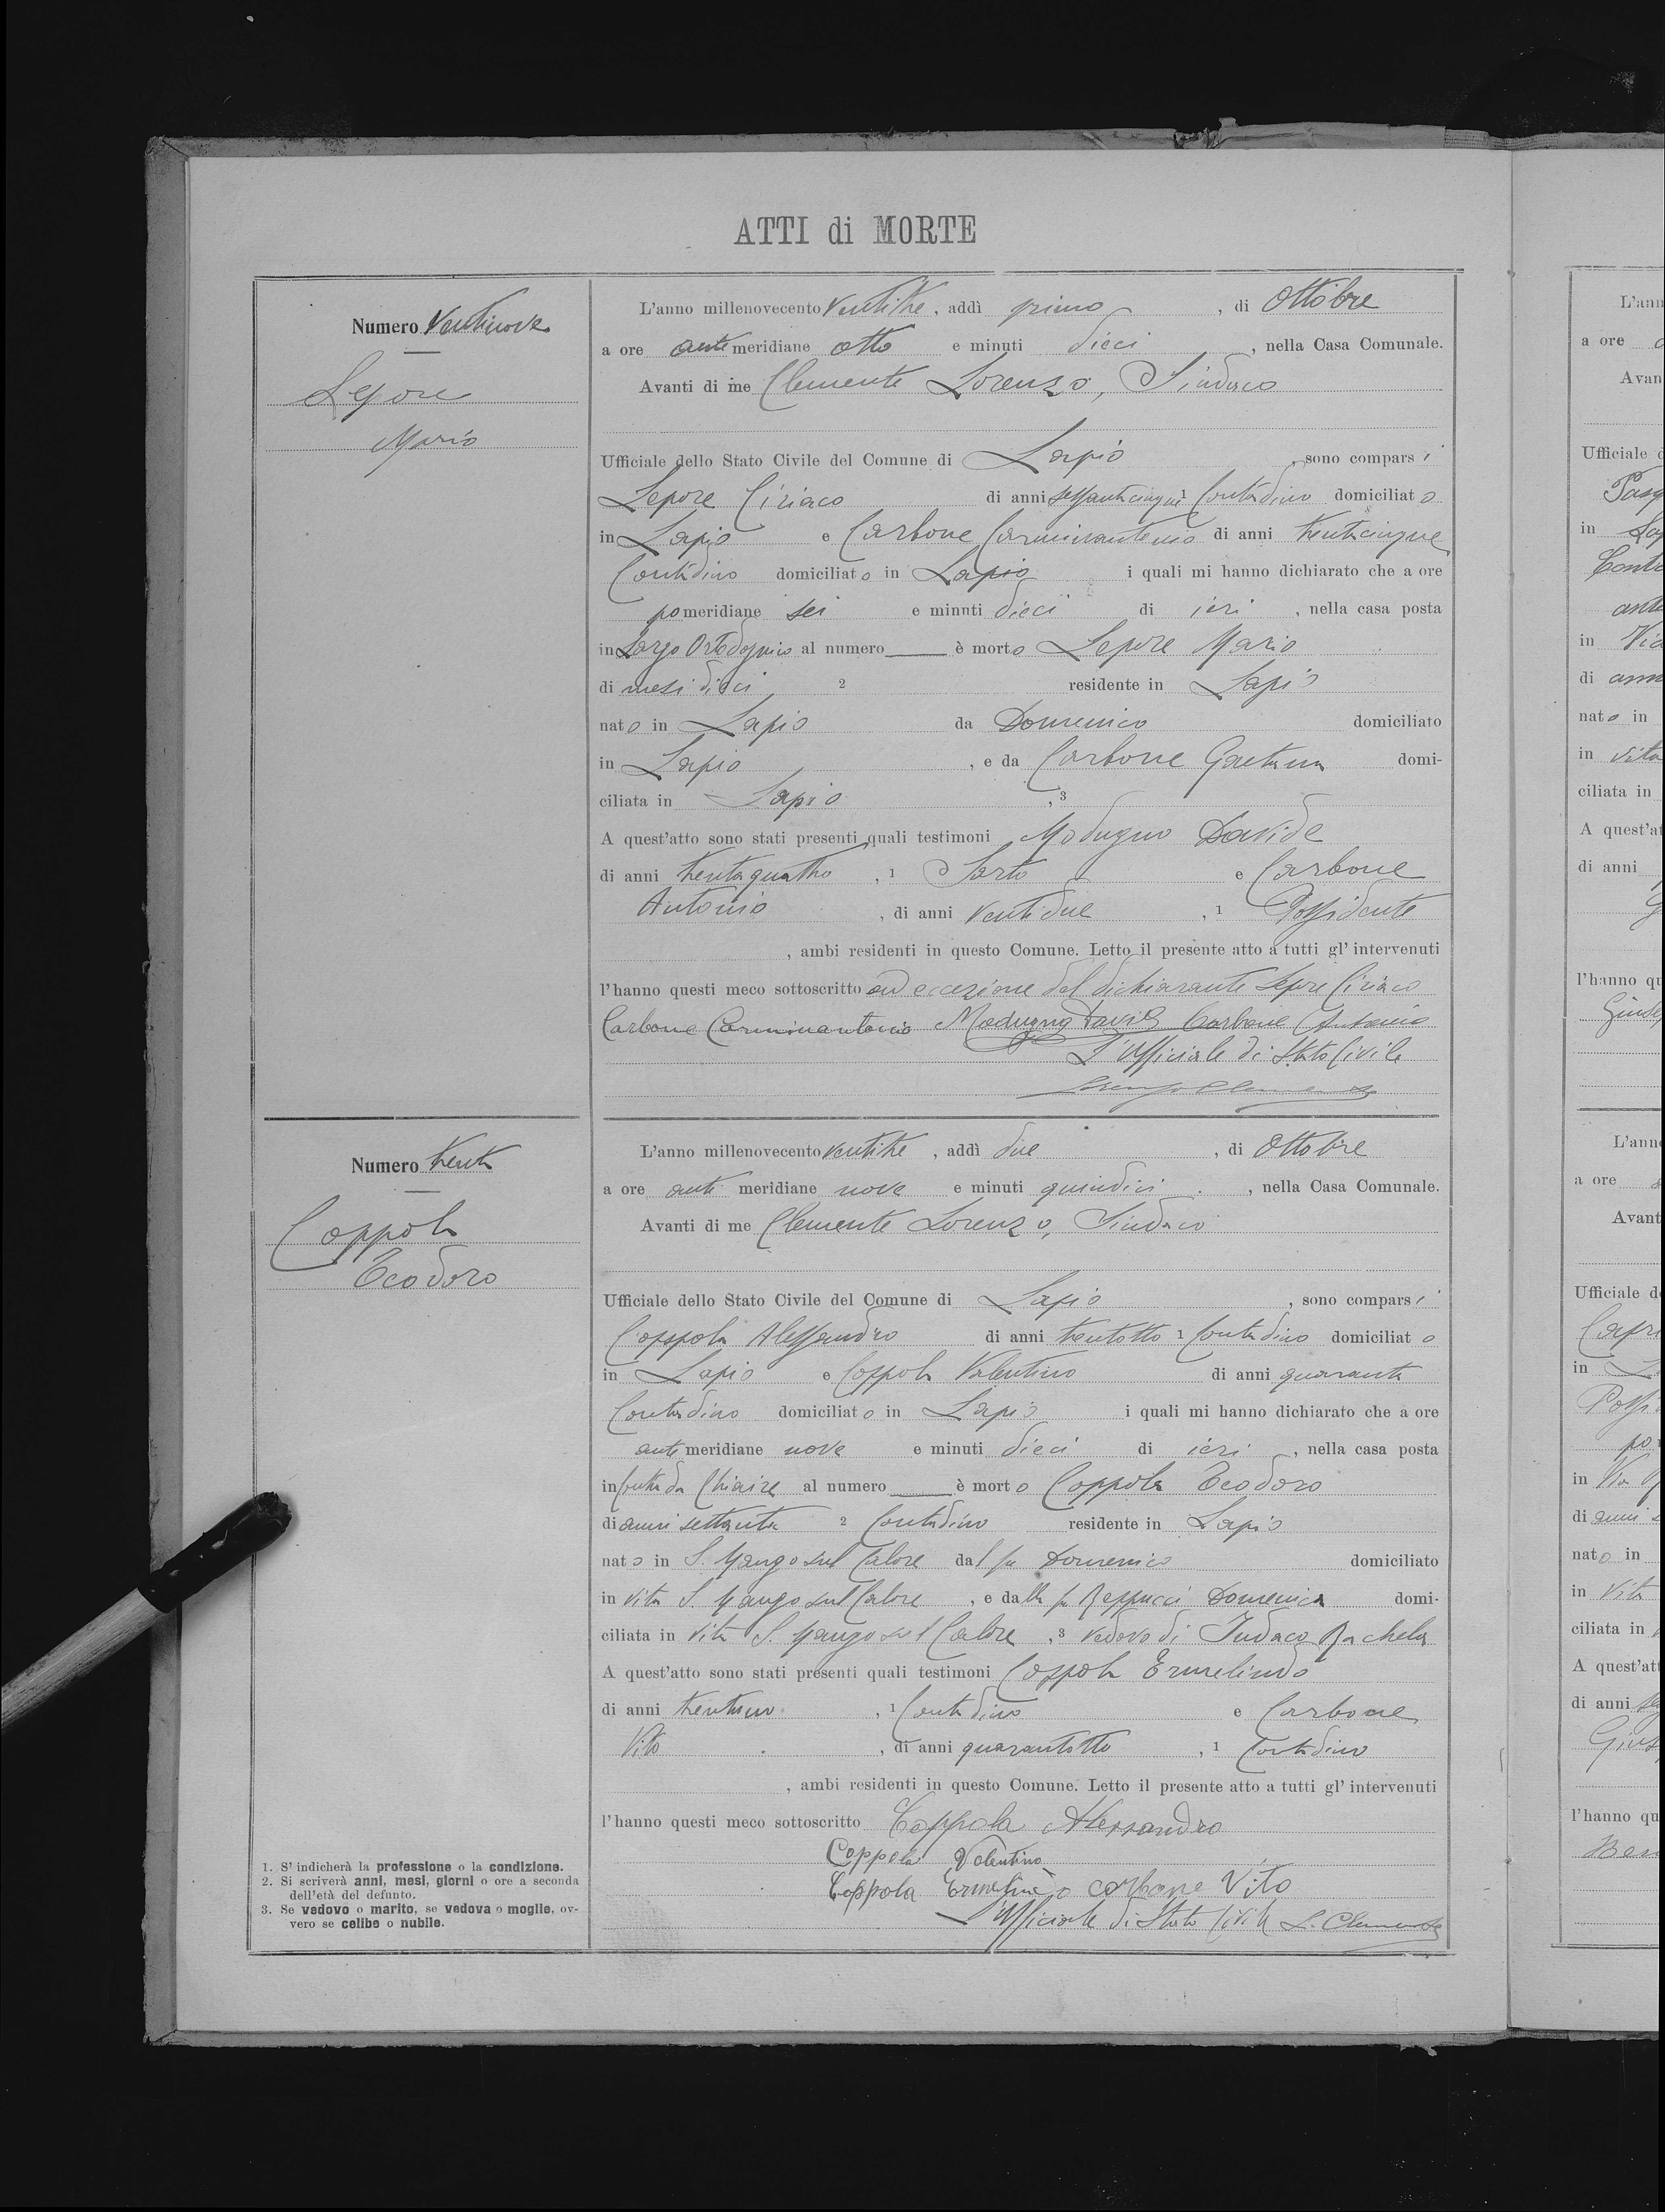 ATTI di MORTE
Numero Ventinove
Lepore
Mario
L'anno millenovecento Ventitre, addì primo, di Ottobre
a ore anti meridiane otto e minuti dieci, nella Casa Comunale.
Avanti di me Clemente Lorenzo, Sindaco
Ufficiale dello Stato Civile del Comune di Lapio, sono comparsi
Lepore Ciriaco di anni sessantacinque 1 Contadino domiciliato
in Lapio e Carbone Carminantonio di anni trentacinque
Contadino domiciliato in Lapio i quali mi hanno dichiarato che a ore
pomeridiane sei e minuti dieci di ieri, nella casa posta
in Largo al numero è morto Lepore Mario
di mesi dieci 2 residente in Lapio
nato in Lapio da Domenico domiciliato
in Lapio, e da Carbone Gaetana domi-
ciliata in Lapio, 3
A quest'atto sono stati presenti quali testimoni Modugno Davide
di anni trentaquattro, 1 Sarto e Carbone
Antonio, di anni ventidue, 1 Possidente
, ambi residenti in questo Comune. Letto il presente atto a tutti gl' intervenuti
l'hanno questi meco sottoscritto ad eccezione del dichiarante Lepore Ciriaco
Carbone Carminantonio Modugno Davide Carbone Antonio
L'Ufficiale di Stato Civile
Lorenzo Clemente
Numero trenta
Coppola
Teodoro
L'anno millenovecento ventitre, addì due, di Ottobre
a ore anti meridiane nove e minuti quindici, nella Casa Comunale.
Avanti di me Clemente Lorenzo, Sindaco
Ufficiale dello Stato Civile del Comune di Lapio, sono comparsi
Coppola Alessandro di anni trentotto 1 Contadino domiciliato
in Lapio e Coppola Valentino di anni quaranta
Contadino domiciliato in Lapio i quali mi hanno dichiarato che a ore
anti meridiane nove e minuti dieci di ieri, nella casa posta
in Contrada Chiaire al numero è morto Coppola Teodoro
di anni settanta 2 Contadino residente in Lapio
nato in S. Mango sul Calore dal fu Domenico domiciliato
in vita S. Mango sul Calore, e dalla fu Reppucci Domenica domi-
ciliata in vita S. Mango sul Calore, 3 vedovo di Iudaco Rachela
A quest'atto sono stati presenti quali testimoni Coppola Ermelindo
di anni trentuno, 1 Contadino e Carbone
Vito, di anni quarantotto, 1 Contadino
, ambi residenti in questo Comune. Letto il presente atto a tutti gl' intervenuti
l'hanno questi meco sottoscritto Coppola Alessandro
Coppola Valentino
Coppola Ermelindo Carbone Vito
L'Ufficiale di Stato Civile L. Clemente
1. S' indicherà la professione o la condizione.
2. Si scriverà anni, mesi, giorni o ore a seconda
dell'età del defunto.
3. Se vedovo o marito, se vedova o moglie, ov-
vero se celibe o nubile.
L'ann
a ore
Avan
Ufficiale d
in
Conta
ante
in Via
di ann
nato in
in vita
ciliata in
A quest'at
di anni
l'hanno qu
L'ann
a ore
Avant
Ufficiale d
in
po
in Via
di anni
nato in
in vita
ciliata in
A quest'att
di anni
l'hanno qu